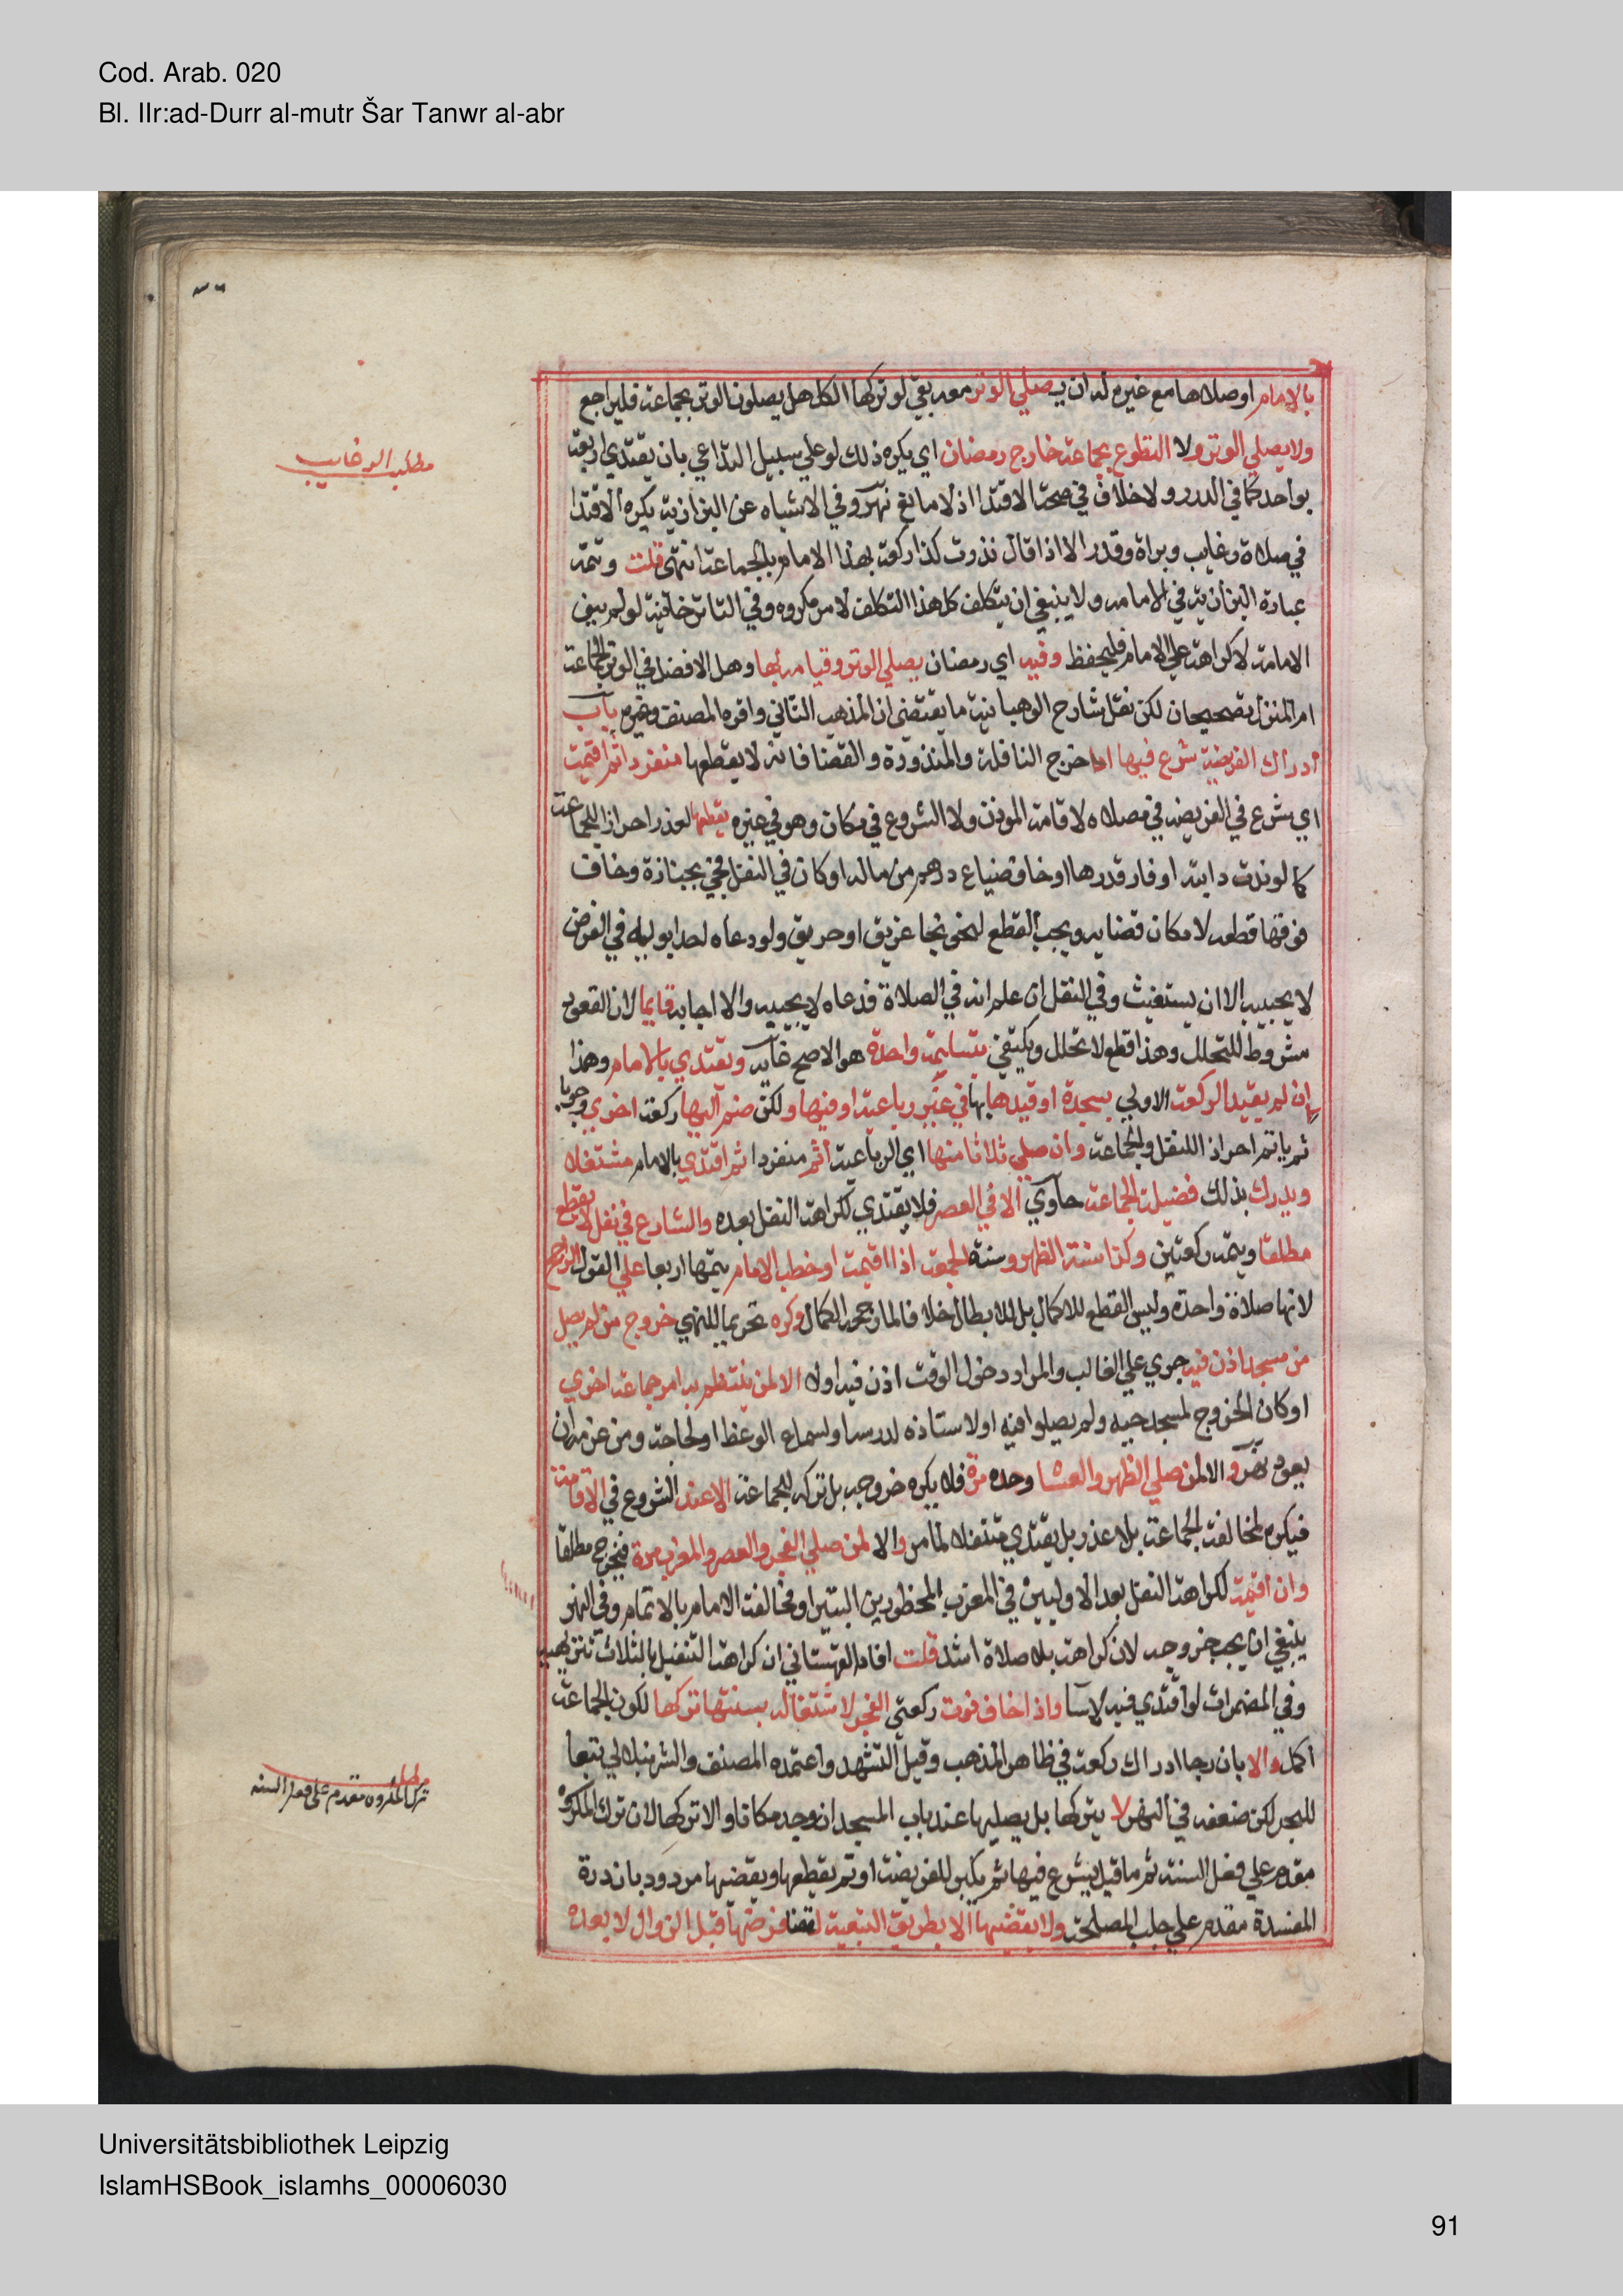 Cod. Arab. 020
Bl. IIr:ad-Durr al-mutr Šar Tanwr al-abr
بالامام او صلاها مع غيره له ان يصلي الوتر معه بقي لو تركها الكل هل يصلون الوتر بجماعة فليراجع
ولا يصلي الوتر ولا التطوع بجماعة خارج رمضان اي يكره ذلك لو علي سبيل التداعي بان يقتدي اربعة
بواحد كما في الدرر ولا خلاف في صحة الاقتدا اذ لا مانع نهر وفي الاشباه عن البزازية يكره الاقتدا
في صلاة رغايب وبراة وقدر الا اذا قال نذرت كذا ركعة بهذا الامام بالجماعة انتهى قلت وتتمة
عبارة البزازية في الامامة ولا ينبغي ان يتكلف كل هذا التكلف لامر مكروه وفي التاترخانية لو لم ينو
الامامة لا كراهة علي الامام فليحفظ وفيه اي رمضان يصلي الوتر وقيامه بها وهل الافضل في الوتر الجماعة
ام المنزل تصحيحان لكن نقل شارح الوهبانية ما يقتضي ان المذهب الثاني واقره المصنف وغيره باب
ادراك الفريضة شرع فيها ادا خرج النافلة والمنذورة والقضا فانه لا يقطعها منفردا ثم اقيمت
اي شرع في الفريضة في مصلاه لا اقامة الموذن ولا الشروع في مكان وهو في غيره يقطعها لعذر احراز الجماعة
كما لو ندت دابته او فار قدرها او خاف ضياع درهم من ماله او كان في النفل فجي بجنازة وخاف
فوتها قطعه لامكان قضايه ويجب القطع لنحو نجا غريق او حريق ولو دعاه احد ابويه في الفرض
لا يجيبه الا ان يستغيث وفي النفل ان علم انه في الصلاة فدعاه لا يجيبه والا اجابه قايما لان القعود
مشروط للتحلل وهذا قطع لا تحلل ويكتفي بتسليمة واحدة هو الاصح غاية ويقتدي بالامام وهذا
ان لم يقيد الركعة الاولي بسجدة او قيدها بها في غير رباعية او فيها ولكن ضم اليها ركعة اخري وجوبا
ثم ياتم احرازا للنفل والجماعة وان صلي ثلاثا منها اي الرباعية اتم منفردا ثم اقتدي بالامام متنفلا
ويدرك بذلك فضيلة الجماعة حاوي الا في العصر فلا يقتدي لكراهة النفل بعده والشارع في نفل لا يقطع
مطلقا ويتمه ركعتين وكذا سنة الظهر وسنة الجمعة اذا اقيمت او خطب الامام يتمها اربعا علي القول الراجح
لانها صلاة واحدة وليس القطع للاكمال بل للابطال خلافا لما رجحه الكمال وكره تحريما للنهي خروج من لم يصل
من مسجد اذن فيه جري علي الغالب والمراد دخول الوقت اذن فيه اولا الا لمن ينتظم به امر جماعة اخري
او كان الخروج لمسجد حيه ولم يصلوا فيه او لاستاذه لدرسه او لسماع الوعظ او لحاجة ومن عزمه ان
يعود نهر والا لمن صلي الظهر والعشا وحده مرة فلا يكره خروجه بل تركه للجماعة الا عند الشروع في الاقامة
فيكره لمخالفة الجماعة بلا عذر بل يقتدي متنفلا لما مر والا لمن صلي الفجر والعصر والمغرب مرة فيخرج مطلقا
وان اقيمت لكراهة النفل بعد الاوليين وفي المغرب المحظورين البتيرا ومخالفة الامام بالاتمام وفي النهر
ينبغي ان يجب خروجه لان كراهة بلا صلاة اشد قلت افاد القهستاني ان كراهة التنفل بالثلاث تنزيهية
وفي المضمرات لو اقتدي فيه لاسا واذا خاف فوت ركعتي الفجر لاشتغاله بسنتها تركها لكون الجماعة
اكمل والا بان رجا ادراك ركعة في ظاهر المذهب وقيل التشهد واعتمده المصنف والشرنبلالي تبعا
للبحر لكن ضعفه في النهر لا يتركها بل يصليها عند باب المسجد ان وجد مكانا والا تركها لان ترك المكروه
مقدم علي فعل السنة ثم ما قيل يشرع فيها ثم يكبر للفريضة او ثم يقطعها ويقضيها مردود بان درة
المفسدة مقدم علي جلب المصلحة ولا يقضيها الا بطريق التبعية لقضا فرضها قبل الزوال لا بعده
مطلب الرغايب
مطلب
ترك المكروه مقدم على فعل السنه
Universitätsbibliothek Leipzig
IslamHSBook_islamhs_00006030
91